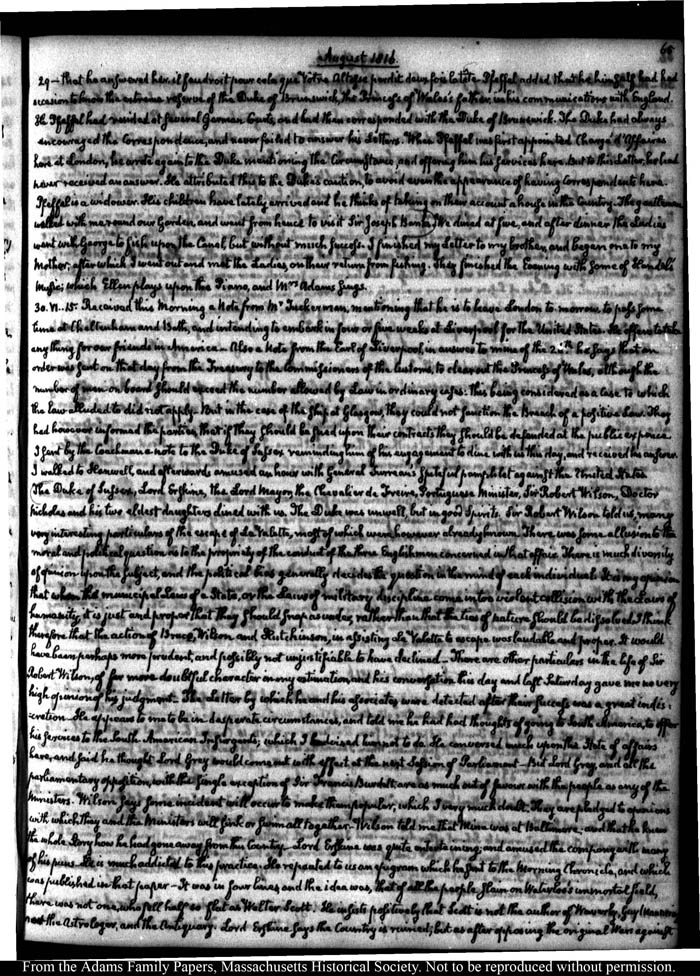 August 1816.
65
29 — that he answered her. il faudroit pour cela que Votre Altesse perdit deux fois la tête. Pfeffel added that he himself had had
occasion to know the extreme reserve of the Duke of Brunswick, the Princess of Wales's father, in his communications with England.
He Pfeffel had resided at several German Courts, and had then corresponded with the Duke of Brunswick. The Duke had always
encouraged the Correspondence, and never failed to answer his Letters. When Pfeffel was first appointed Chargé d'Affaires
here at London, he wrote again to the Duke mentioning the Circumstance, and offering him his services here. But to this letter, he had
never received an answer. He attributed this to the Duke's caution, to avoid even the appearance of having Correspondents here.
Pfeffel is a widower. His children have lately arrived and he thinks of taking on their account a house in the Country. They afterwards
walked with me round our Garden, and went from hence to visit Sir Joseph Banks. We dined at five, and after dinner the Ladies
went with George to fish upon the Canal but without much success. I finished my Letter to my brother, and began one to my
Mother; after which I went out and met the Ladies, on their return from fishing. They finished the Evening with some of Handel's
Music; which Ellen plays upon the Piano, and Mrs Adams sings.
30. VI..15. Received this Morning a Note from Mr Tuckerman, mentioning that he is to leave London to-morrow to pass some
time at Cheltenham and Bath, and intending to embark in four or five weeks at Liverpool for the United States. He offers to take
any thing for our friends in America — Also a Note from the Earl of Liverpool in answer to mine of the 24th he says that an
order was sent on that day from the Treasury to the Commissioners of the Customs, to clear out the Princess of Wales, although the
number of men on board should exceed the number allowed by Law in ordinary cases: this being considered as a case to which
the Law alluded to did not apply. But in the case of the Ship at Glasgow, they could not sanction the Breach of a positive Law. They
had however informed the parties, that if they should be sued upon their contracts they should be defended at the public expence.
I sent by the Coachman a note to the Duke of Sussex reminding him of his engagement to dine with us this day, and received his answer.
I walked to Hanwell, and afterwards amused an hour with General Turreau's spiteful pamphlet against the United States.
The Duke of Sussex, Lord Erskine, the Lord Mayor, the Chevalier de Freire, Portuguese Minister, Sir Robert Wilson, Doctor
Nicholas and his two eldest daughters dined with us. The Duke was unwell, but in good Spirits. Sir Robert Wilson told us, many
very interesting particulars of the escape of La Valette, most of which were however already known. There was some allusion to the
moral and political question as to the propriety of the conduct of the three Englishmen concerned in that affair. There is much diversity
of opinion upon the subject, and the political bias generally decides the question in the mind of each individual. It is my opinion
that when the municipal Laws of a State, or the Laws of military discipline come into violent collision with the Laws of
humanity, it is just and proper that they should snap asunder, rather than that the ties of nature should be dissolved. I think
therefore that the action of Bruce, Wilson and Hutchinson, in assisting La Valette to escape was laudable and proper. It would
have been perhaps more prudent, and possibly not unjustifiable to have declined — There are other particulars in the life of Sir
Robert Wilson, of far more doubtful character in my estimation, and his conversation this day and last Saturday gave me no very
high opinion of his judgment. The Letter by which he and his associates were detected after their success was a great indis:
:cretion. He appears to me to be in desperate circumstances, and told me he had had thoughts of going to South America, to offer
his services to the South American Insurgents; which I advised him not to do. He conversed much upon the State of affairs
here, and said he thought Lord Grey would come out with effect at the next Session of Parliament — But Lord Grey, and all the
parliamentary opposition, with the single exception of Sir Francis Burdett, are as much out of favour with the people as any of the
Ministers. Wilson says some incident will occur to make them popular, which I very much doubt. They are pledged to opinions
with which they and the Ministers will sink or swim all together. Wilson told me that Mina was at Baltimore; and that he knew
the whole story how he had gone away from this Country. Lord Erskine was quite entertaining; and amused the company with many
of his puns. He is much addicted to this practice. He repeated to us an epigram which he sent to the Morning Chronicle, and which
was published in that paper — It was in four lines, and the idea was, that of all the people slain on Waterloo's immortal field,
there was not one, who fell half so flat as Walter Scott. He insists positively that Scott is not the author of Waverly, Guy Mannering
nor the Astrologer, and the Antiquary. Lord Erskine says the Country is ruined; but as after opposing the original Wars against
From the Adams Family Papers, Massachusetts Historical Society. Not to be reproduced without permission.